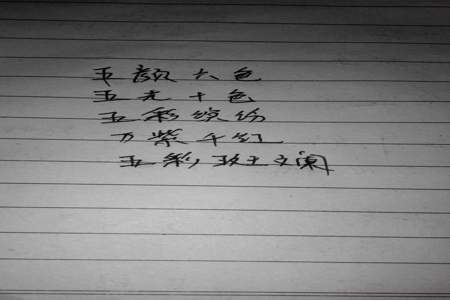 五颜六色
五光十色
五彩缤纷
万紫千红
五彩斑斓